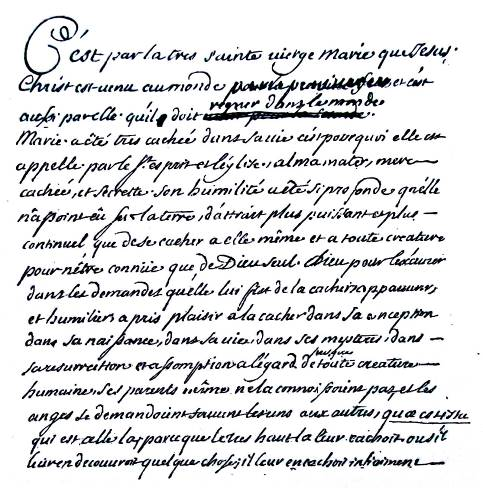 C'est par la tres sainte vierge Marie que Jesus
Christ est venu au monde et c'est
aussi par elle qu'il doit regner dans le monde
Marie a èté tres cachée dans sa vie c'est pourquoi elle est
appellé par le st esprit et l'eglise, alma mater, mere
cachée, et secrette. son humilité a èté si profonde qu'elle
n'a point eû sur la terre, d'attrait plus puissant et plus
continuel, que de se cacher a elle même et a toute creature
pour n'être connüe que de Dieu seul. Dieu pour l'exaucer
dans les demandes qu'elle lui fist de la cacher appauvrir
et humilier, a pris plaisir a la cacher dans sa conception
dans sa naissance, dans sa vie, dans ses mysteres, dans
sa resurrection et assomption a l'égard de presque toute creature
humaine, ses parents même ne la connoissoient pas, et les
anges se demandoient souvent les uns aux autres; quae est ista
qui est celle la, parce que le tres haut la leur cachoit, ou s'il
leur en decouvroit quelque chose, il leur en cachoit infiniment